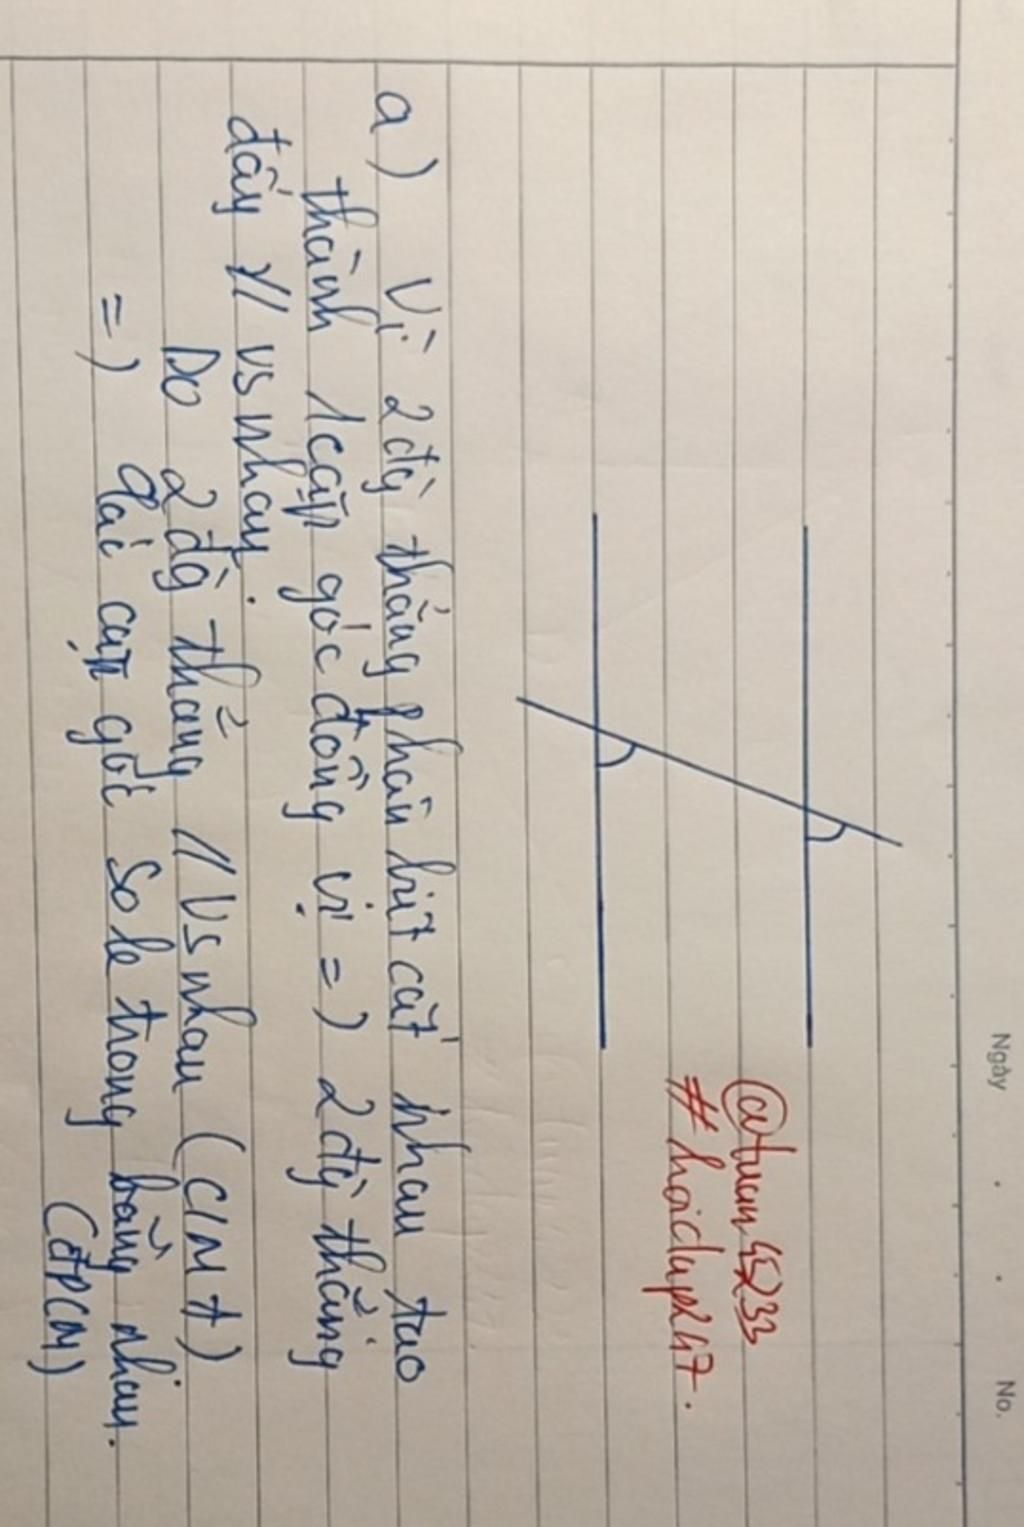 Ngày . . No.
@tuan45233
#hoidap247.
a) Vì 2 đg` thẳng phân biệt cắt nhau tạo
thành 1 cặp góc đồng vị =) 2 đg` thẳng
đấy // vs nhau.
Do 2 đg` thẳng // vs nhau (CMt)
=) Các cặp góc so le trong bằng nhau.
(đPCM)